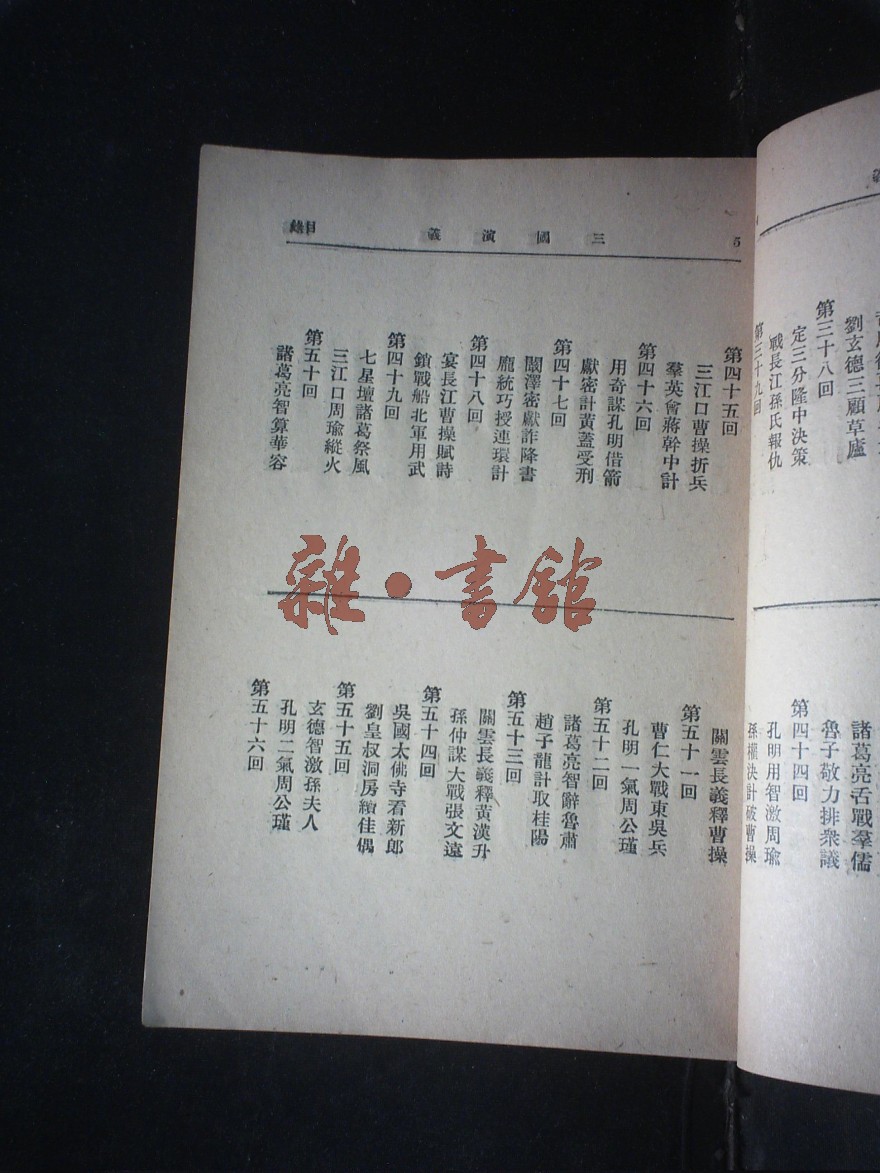 劉玄德三顧草廬
第三十八回
定三分隆中決策
戰長江孫氏報仇
第三十九回
諸葛亮舌戰羣儒
魯子敬力排衆議
第四十四回
孔明用智激周瑜
孫權決計破曹操
5 三國演義 目錄
第四十五回
三江口曹操折兵
羣英會蔣幹中計
第四十六回
用奇謀孔明借箭
獻密計黃蓋受刑
第四十七回
闞澤密獻詐降書
龐統巧授連環計
第四十八回
宴長江曹操賦詩
鎖戰船北軍用武
第四十九回
七星壇諸葛祭風
三江口周瑜縱火
第五十回
諸葛亮智算華容
關雲長義釋曹操
第五十一回
曹仁大戰東吳兵
孔明一氣周公瑾
第五十二回
諸葛亮智辭魯肅
趙子龍計取桂陽
第五十三回
關雲長義釋黃漢升
孫仲謀大戰張文遠
第五十四回
吳國太佛寺看新郎
劉皇叔洞房續佳偶
第五十五回
玄德智激孫夫人
孔明二氣周公瑾
第五十六回
雜·書館